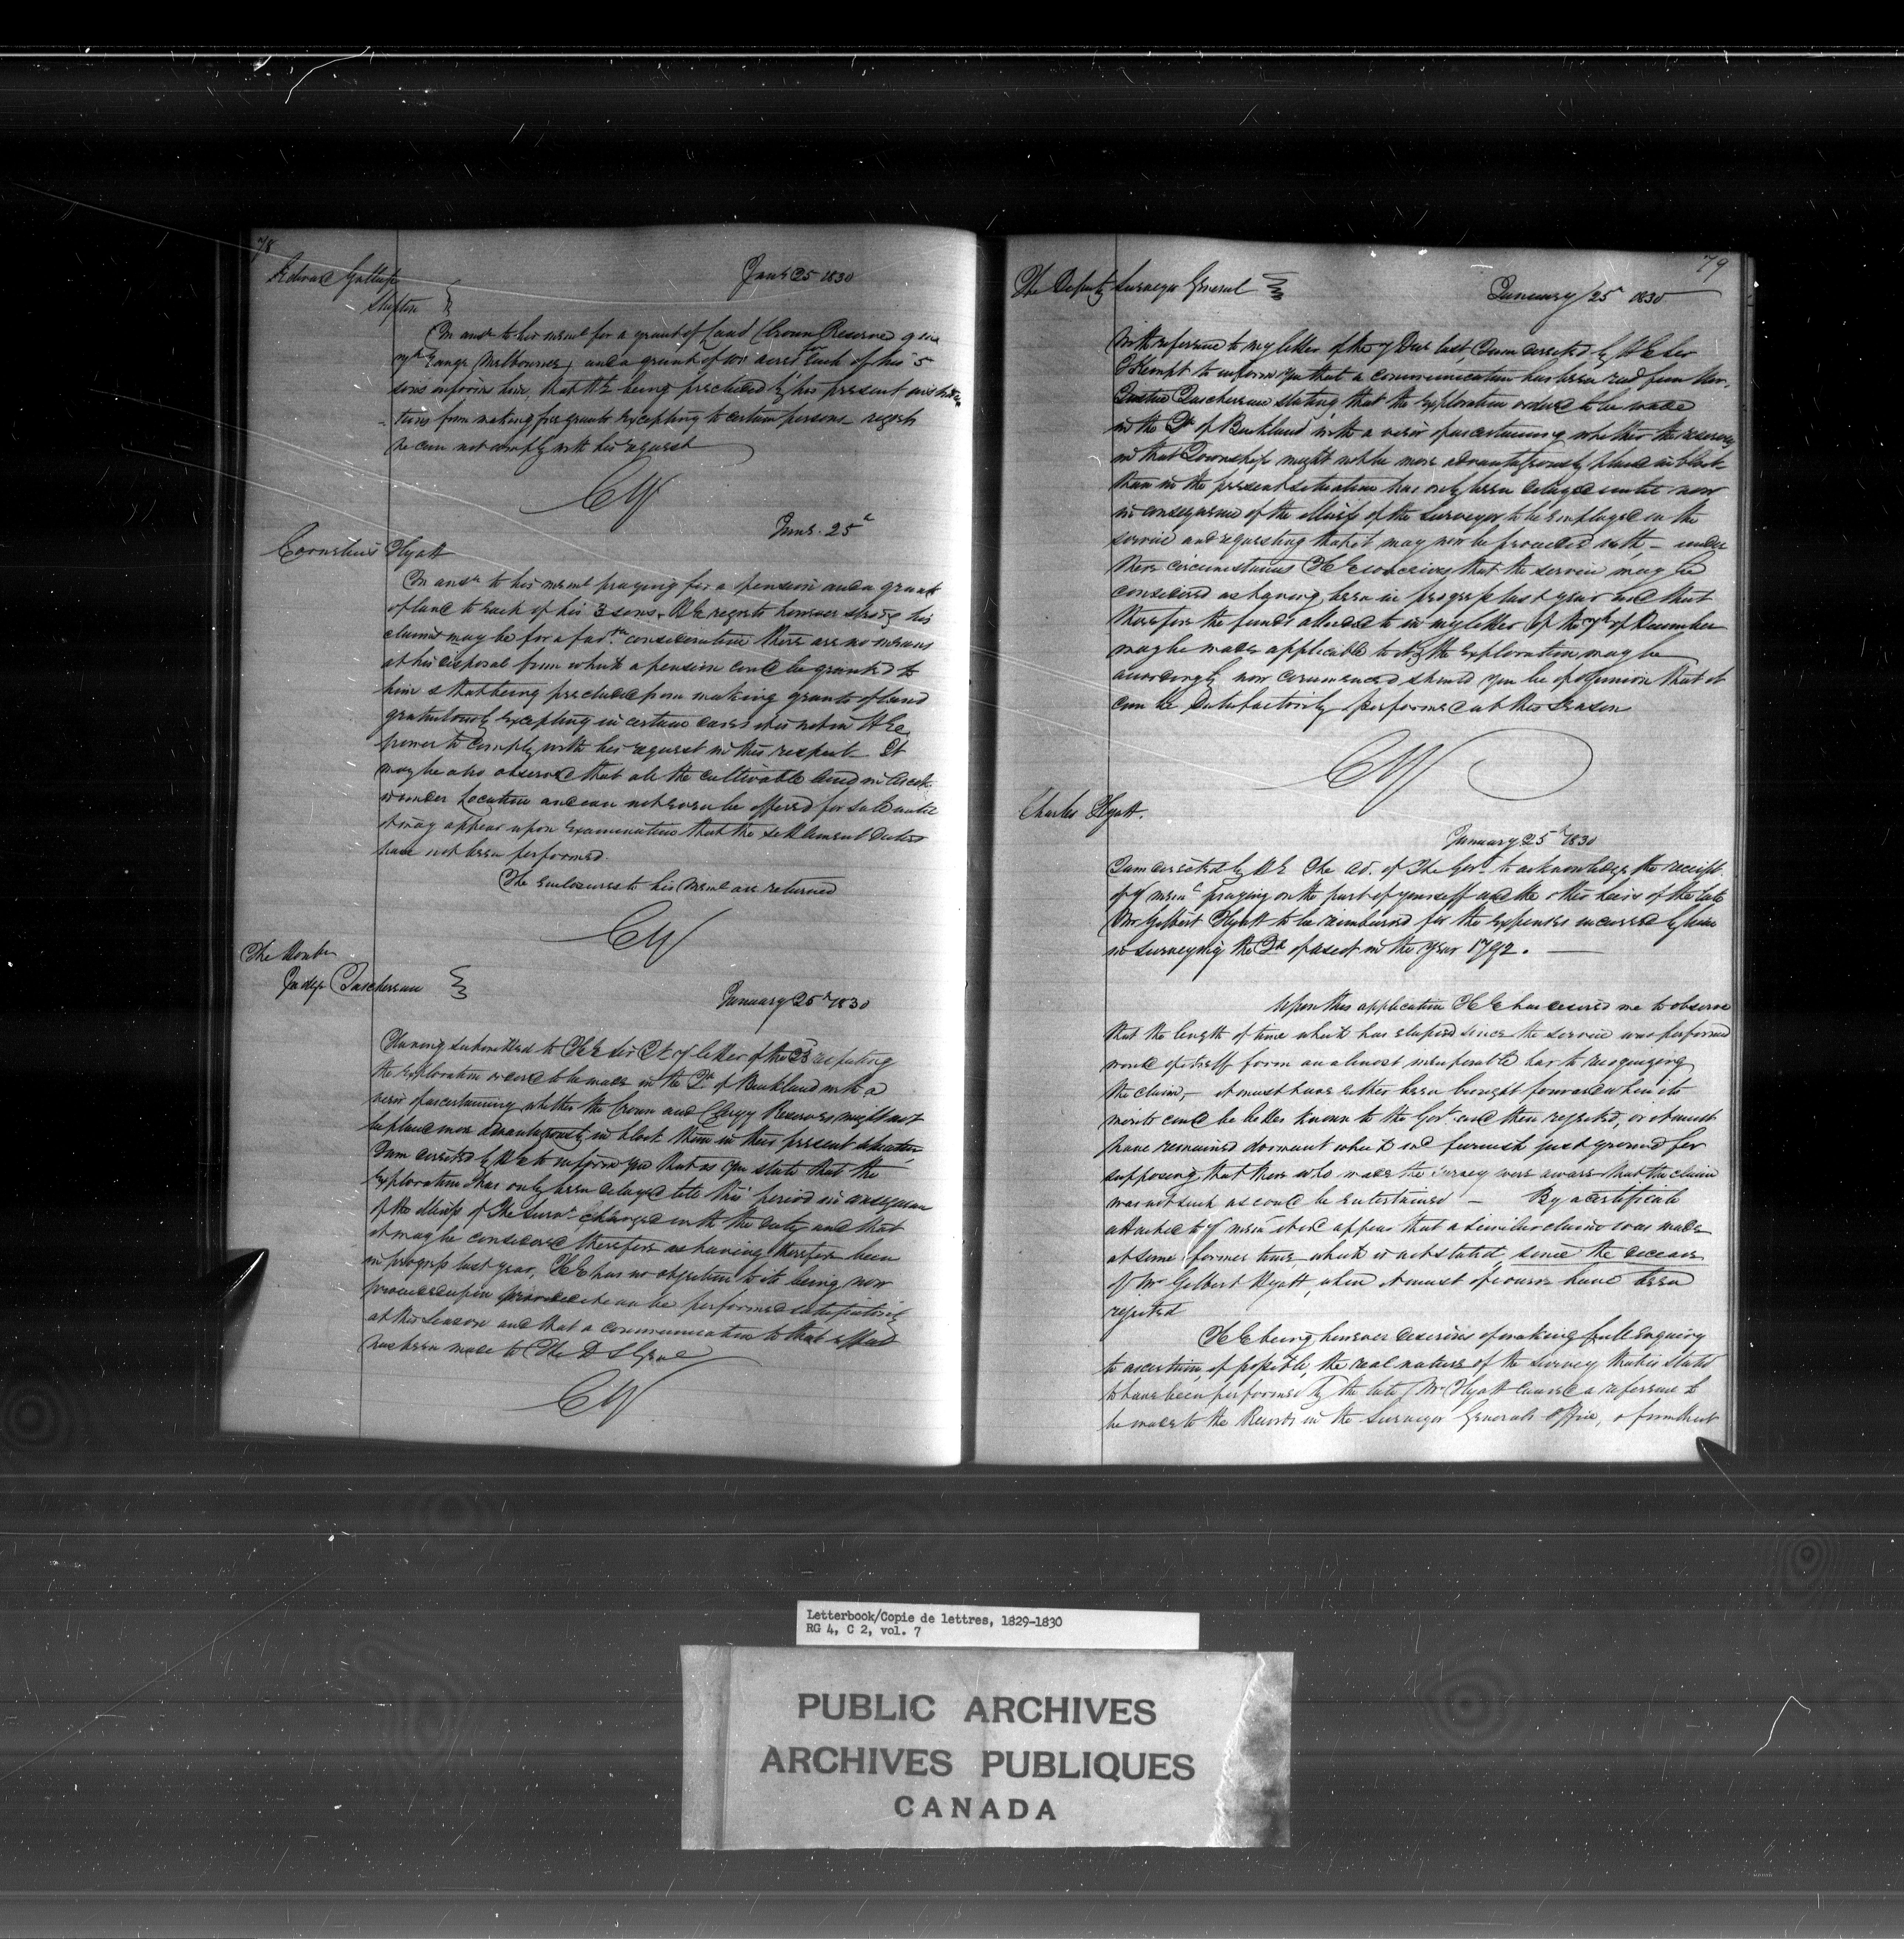 78
Edward Gallup
Shipton
Jany 25 1830
In ansr to his meml for a grant of Land (Crown Reserve 9 in
7th Range Melbourne) and a grant of 100 acres for Each of his 5
sons informs him, that HE being precluded by his present instruc
-tions from making free grants Excepting to certain persons regrets
he can not comply with his request
CY
Cornelius Hyatt
Jany. 25th
In ansr to his meml praying for a pension and a grant
of land to Each of his 3 sons. HE regrets however strong his
claims may be for a favble consideration there are no means
at his disposal from which a pension could be granted to
him & that being precluded from making grants of land
gratuitously Excepting in certain cases it is not in HEs
power to comply with his request in this respect It
may be also observed that all the cultivable land in Ascot
is under Location and can not even be offered for sale until
it may appear upon Examination that the settlement duties
have not been performed.
The enclosures to his Meml are returned
CY
The Honble
Judge Taschereau
January 25th 1830
Having submitted to HE Sir J K yr letter of the 23 respecting
the Exploration ordered to be made in the Tp of Buckland with a
view of ascertaining whether the Crown and Clergy Reserves might not
be placed more advantageously in block than in their present situation
I am directed by HE to inform you that as you state that the
Exploration has only been delayed till this period in consequence
of the illness of the Survr charged with the duty and that
it may be considered therefore as having therefore been
in progress last year, HE has no objection to its being now
proceeded upon provided it can be performed satisfactorily
at this Season and that a communication to that effect
has been made to The D S Genl
CY
79
The Deputy Surveyor General
January 25th 1830
With reference to my letter of the 7 Decr last, I am directed by HE Sir
J Kempt to inform you that a communication has been recd from Mr.
Justice Taschereau stating that the Exploration ordered to be made
in the Tp of Buckland with a view of ascertaining whether the reserves
in that Township might not be more advantageously placed in block
than in the present situation has only been delayed until now
in consequence of the illness of the Surveyor to be Employed on the
service and requesting that it may now be proceeded with, – under
these circumstances HE conceives that the service may be
considered as having been in progress last year and that
therefore the funds alluded to in my letter of the 7th of December
may be made applicable to it, the Exploration may be
accordingly now commenced should you be of opinion that it
can be Satisfactorily performed at this Season
CY
Charles Hyatt.
January 25th 1830
I am directed by HE The Ad. of The Govt to acknowledge the receipt
of yr meml praying on the part of yourself and the other heirs of the late
Mr Gilbert Hyatt to be reimbursed for the expenses incurred by him
in surveying the Tp of Ascot in the year 1792. —
Upon this application HE has desired me to observe
that the length of time which has elapsed since the service was performed
would of itself form an almost insuperable bar to recognizing
the claim, – it must have either been brought forward when its
merits could be better known to the Govt and then rejected, or it must
have remained dormant which wd furnish just ground for
supposing that those who made the survey were aware that the claim
was not such as could be entertained – By a certificate
attached to yr meml it wd appear that a similar claim was made
at some former time, which is not stated, since the decease
of Mr Gilbert Hyatt, when it must of course have been
rejected
HE being however desirous of making full Enquiry
to ascertain, if possible, the real nature of the survey that is stated
to have been performed by the late Mr Hyatt caused a reference to
be made to the Records in the Surveyor Generals office, & from that
Letterbook/Copie de lettres, 1829-1830
RG 4, C 2, vol. 7
PUBLIC ARCHIVES
ARCHIVES PUBLIQUES
CANADA